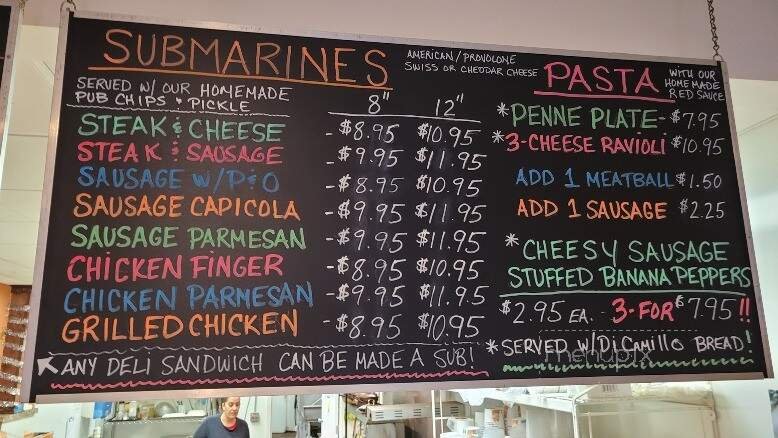 SUBMARINES
AMERICAN / PROVOLONE
SWISS OR CHEDDAR CHEESE
SERVED W/ OUR HOMEMADE
PUB CHIPS & PICKLE
8" 12"
STEAK & CHEESE - $8.95 $10.95
STEAK & SAUSAGE - $9.95 $11.95
SAUSAGE W/P&O - $8.95 $10.95
SAUSAGE CAPICOLA - $9.95 $11.95
SAUSAGE PARMESAN - $9.95 $11.95
CHICKEN FINGER - $8.95 $10.95
CHICKEN PARMESAN - $9.95 $11.95
GRILLED CHICKEN - $8.95 $10.95
ANY DELI SANDWICH CAN BE MADE A SUB!
PASTA
WITH OUR
HOMEMADE
RED SAUCE
*PENNE PLATE - $7.95
*3-CHEESE RAVIOLI $10.95
ADD 1 MEATBALL $1.50
ADD 1 SAUSAGE $2.25
* CHEESY SAUSAGE
STUFFED BANANA PEPPERS
$2.95 EA. 3-FOR $7.95!!
* SERVED W/DiCamillo BREAD!
menupix